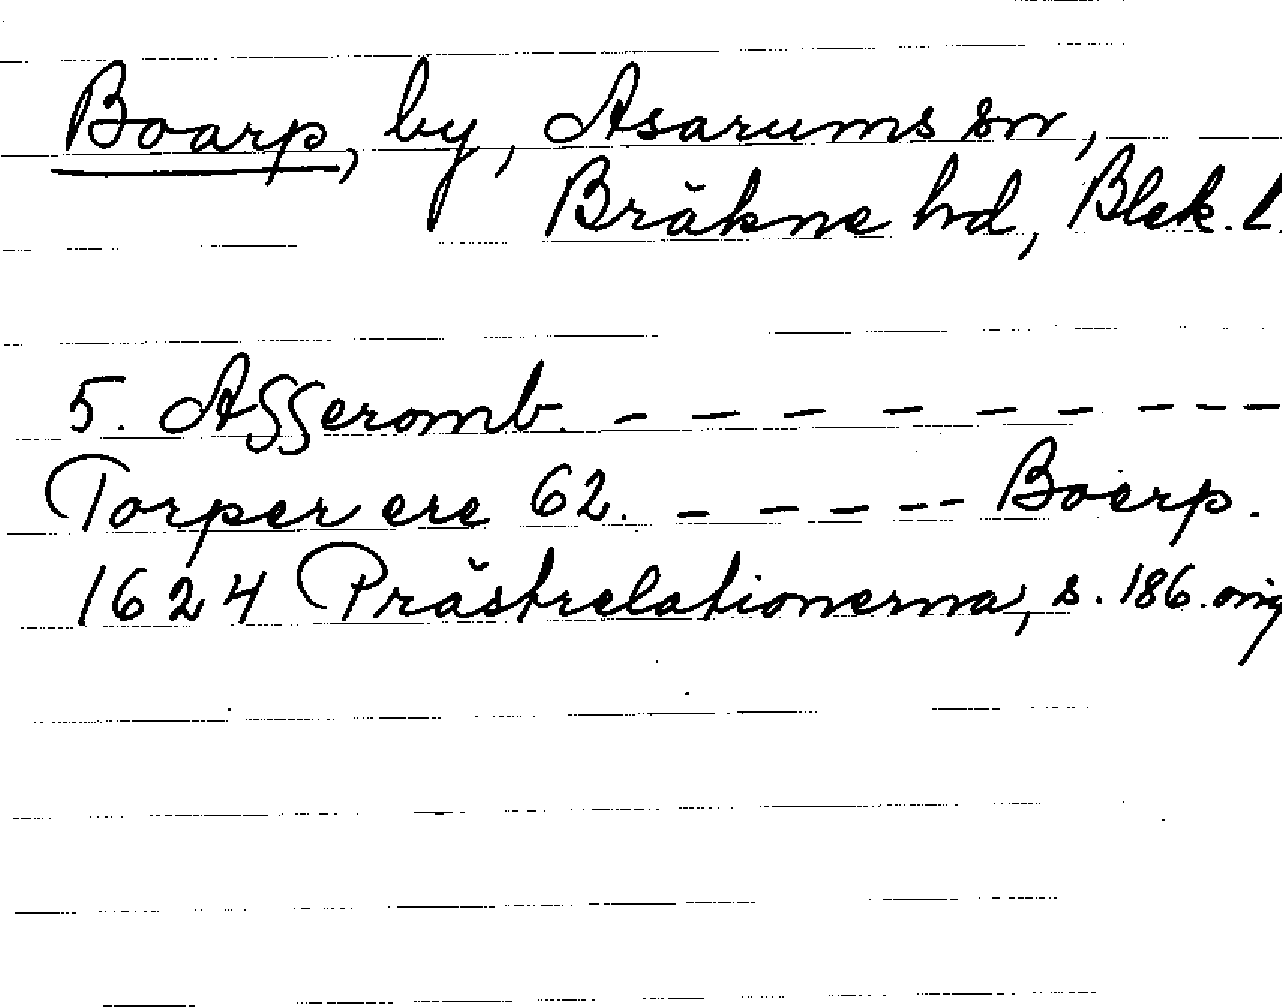 Boarp, by, Asarums sn,
Bräkne hd, Blek. L.
5. Asseromb. - - - - - - - - -
Torper ere 62. - - - - - Boerp.
1624 Prästrelationerna, s. 186. orig